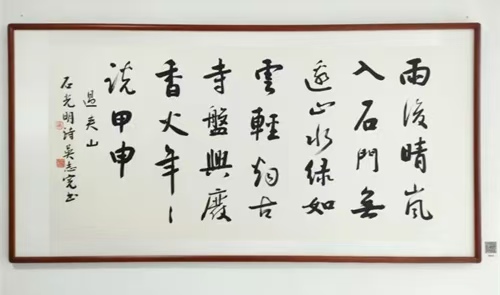 雨後晴嵐
入石門無
邊山水绿如
雲輕古
寺盤興廢
香火年〻
説甲申
過夾山
石光明詩吳志書